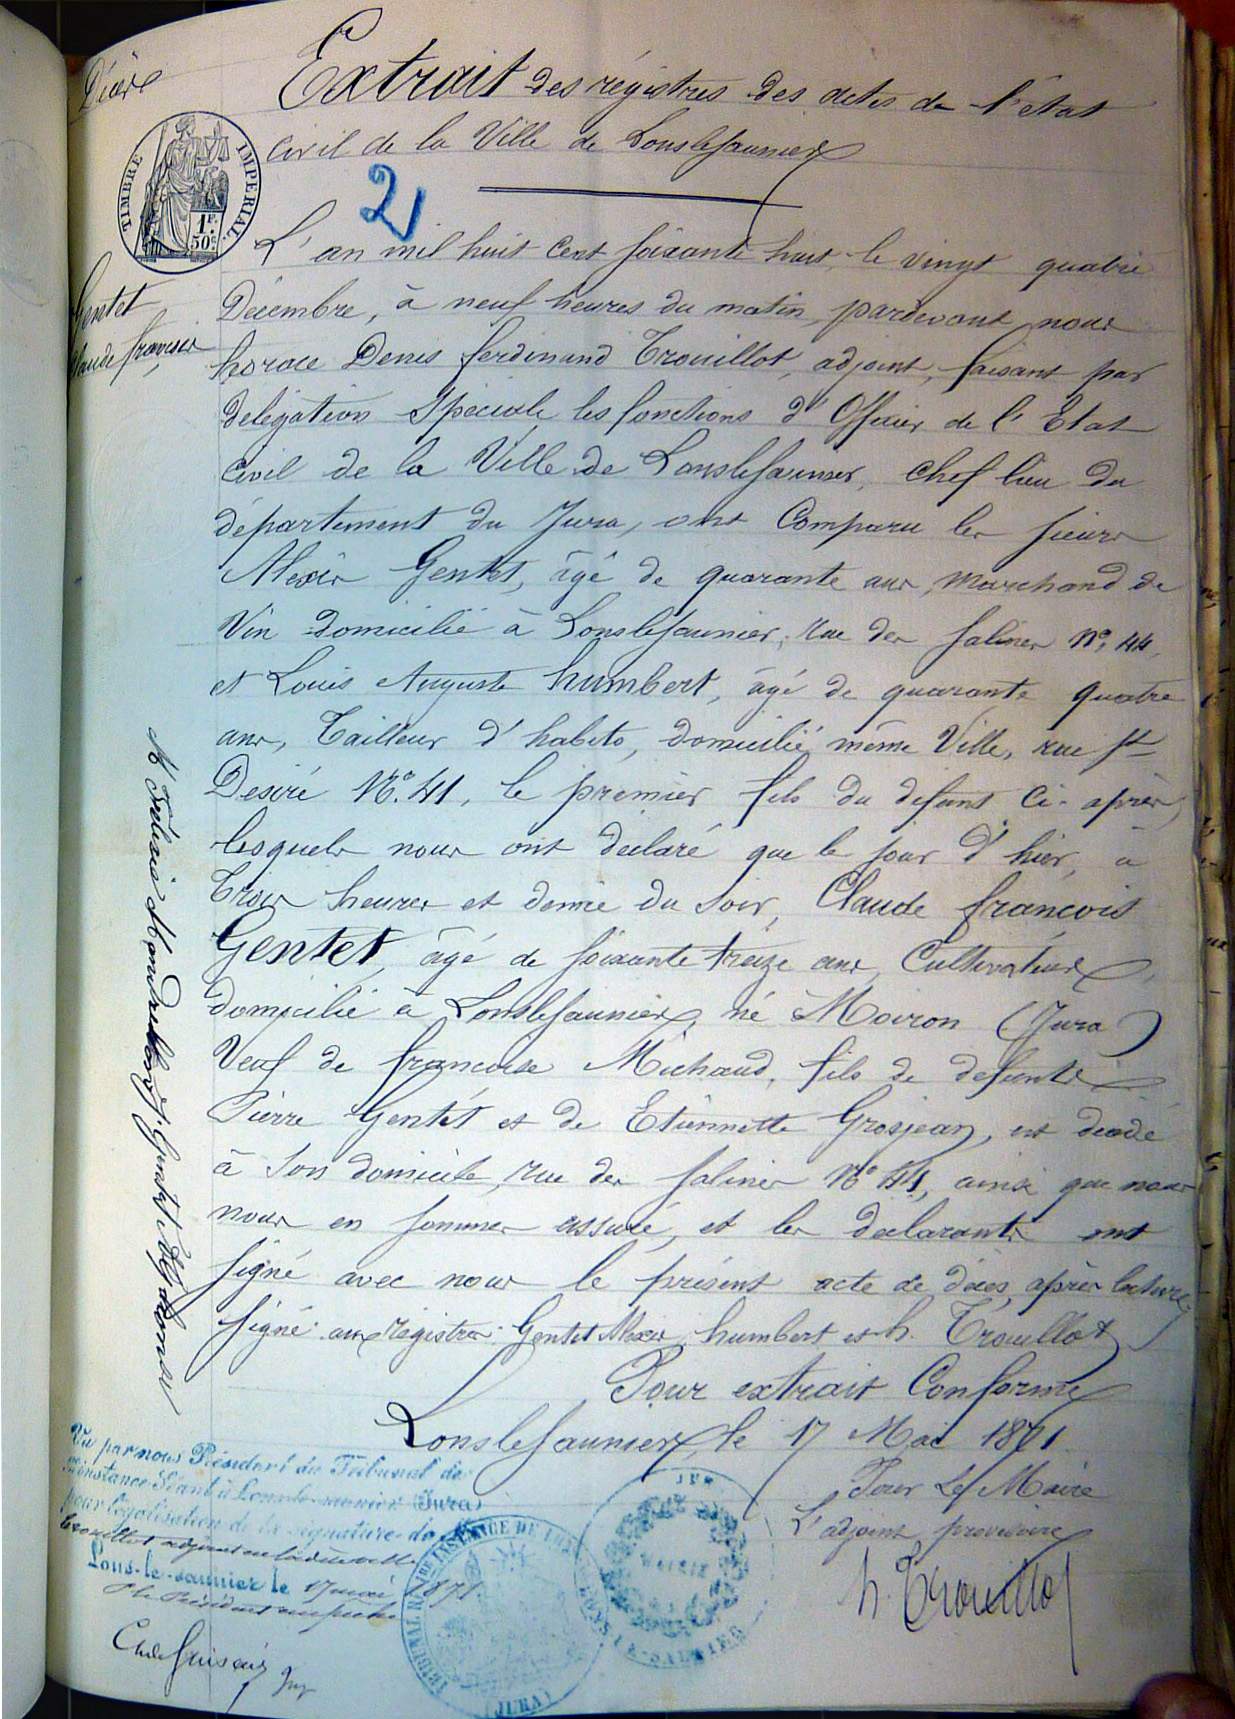 Décès
Extrait des régistres des actes de l'état
civil de la Ville de Lonslesaunier
TIMBRE IMPERIAL
1F.
50c
2
L'an mil huit cent soixante huit le vingt quatre
Gentet
Claude françois
Décembre, à neuf heures du matin, pardevant nous
horace Denis ferdinand Trouillot, adjoint, faisant par
délégation Spéciale les fonctions d'Officier de l'Etat
Civil de la Ville de Lonslesaunier, chef lieu du
département du Jura, ont Comparu les sieurs
Alexis Gentet, âgé de quarante ans, marchand de
Vin domicilié à Lonslesaunier, rue des salines No. 44,
et Louis Auguste humbert, âgé de quarante quatre
ans, Tailleur d'habits, domicilié même Ville, rue St
Desiré No. 41, le premier fils du défunt ci-après,
lesquels nous ont déclaré que le jour d'hier, à
Trois heures et demie du soir, Claude francois
Gentet, âgé de soixante treize ans, Cultivateur,
domicilié à Lonslesaunier, né à Moiron (Jura)
Veuf de francoise Michaud, fils de defunts
Pierre Gentet et de Etiennette Grosjean, est décédé
à son domicile, rue des salines No 44, ainsi que nous
nous en sommes assuré, et les declarants ont
signé avec nous le présent acte de décès, après lecture,
signé au régistre: Gentet Alexis, humbert et h. Trouillot
Pour extrait Conforme
Lonslesaunier, le 17 Mai 1871
Pour Le Maire
L'adjoint provisoire
h. Trouillot
Vu par nous Président du Tribunal de
1re instance Séant à Lons-le-saunier (Jura)
pour légalisation de la signature de M
trouillot adjoint en ladite ville
Lons-le-saunier le 17 mai 1871
TRIBUNAL DE 1RE INSTANCE DE LONS
(JURA)
MAIRIE